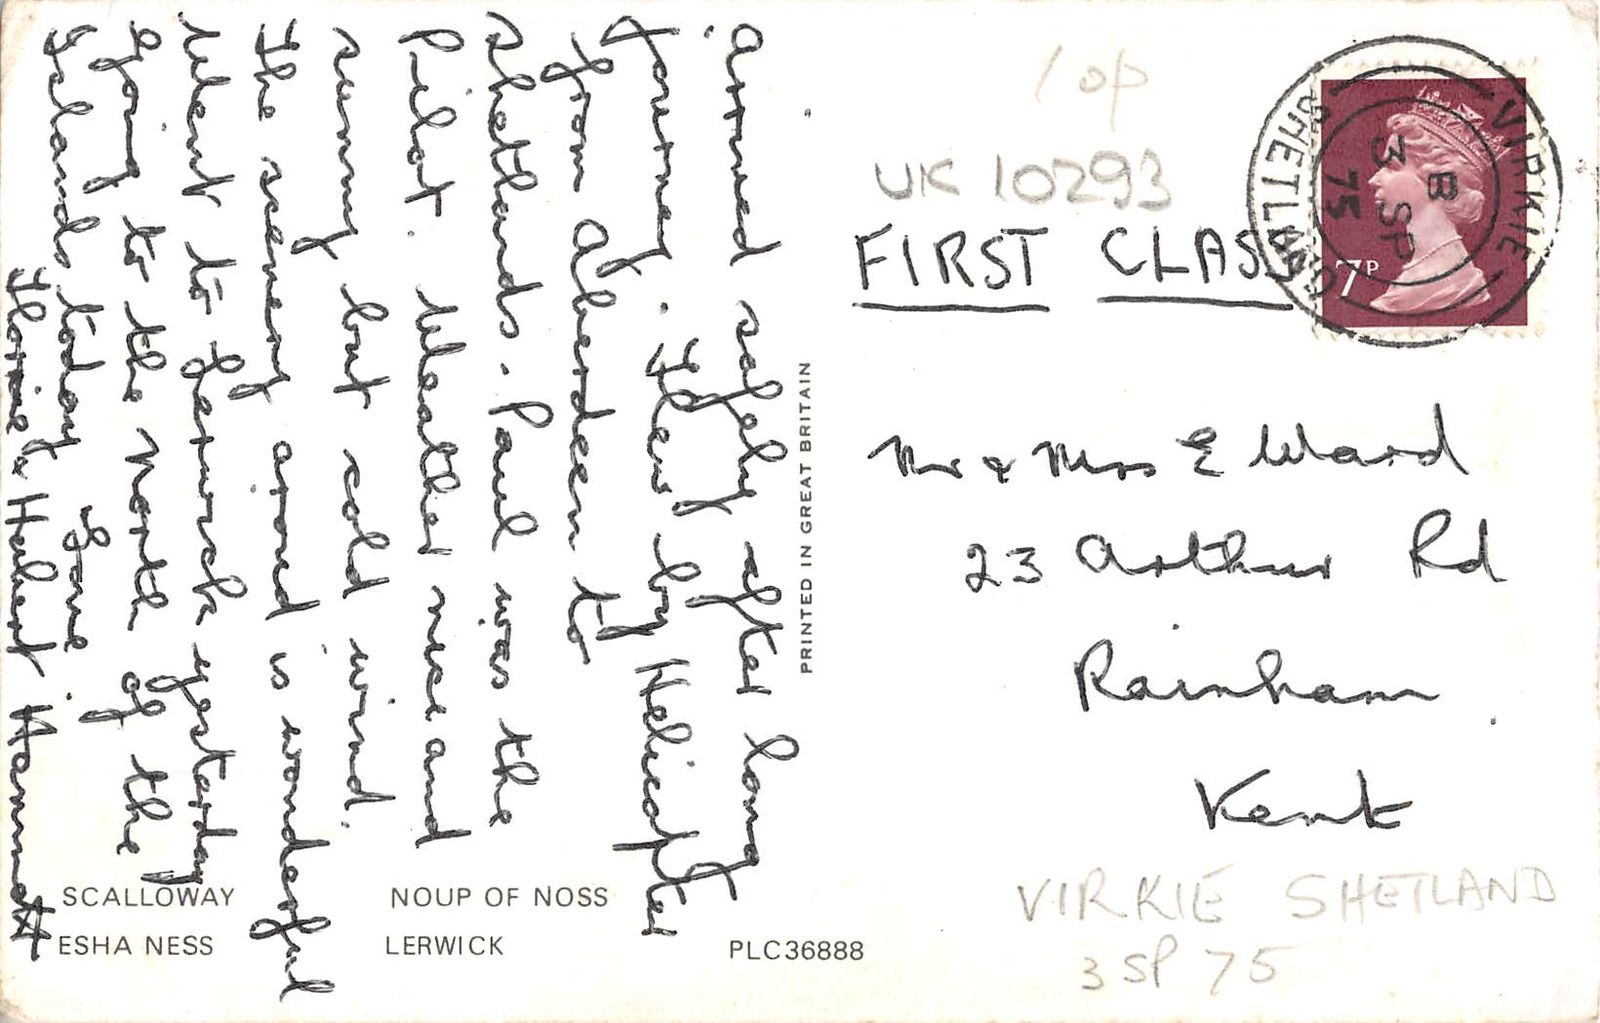 Arrived safely after long
journey. Flew by Helicopter
from Aberdeen to
Shetlands. Paul was the
Pilot. Weather nice and
sunny but cold wind.
The scenery around is wonderful
Went to Lerwick yesterday
going to the North of the
Islands today
Florrie & Herbert Hammett
SCALLOWAY
NOUP OF NOSS
ESHA NESS
LERWICK
PLC36888
PRINTED IN GREAT BRITAIN
10p
UK 10293
FIRST CLASS
VIRKIE
SHETLAND
B
3 SP
75
7P
Mr & Mrs E Ward
23 Arthur Rd
Rainham
Kent
VIRKIE SHETLAND
3 SP 75